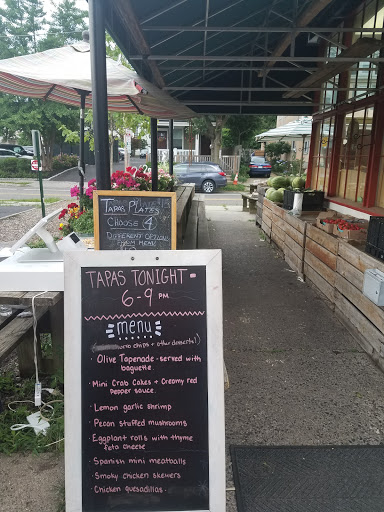 TAPAS PLATES
CHOOSE 4
DIFFERENT OPTIONS
FROM MENU
TAPAS TONIGHT -
6-9 PM
menu
chips + other desserts!)
• Olive Tapenade - served with
baguette
• Mini Crab Cakes + Creamy red
Pepper sauce.
• Lemon garlic shrimp
• Pecan stuffed mushrooms
• Eggplant rolls with thyme
feta cheese
• Spanish mini meatballs
• Smoky chicken skewers
• Chicken quesadillas